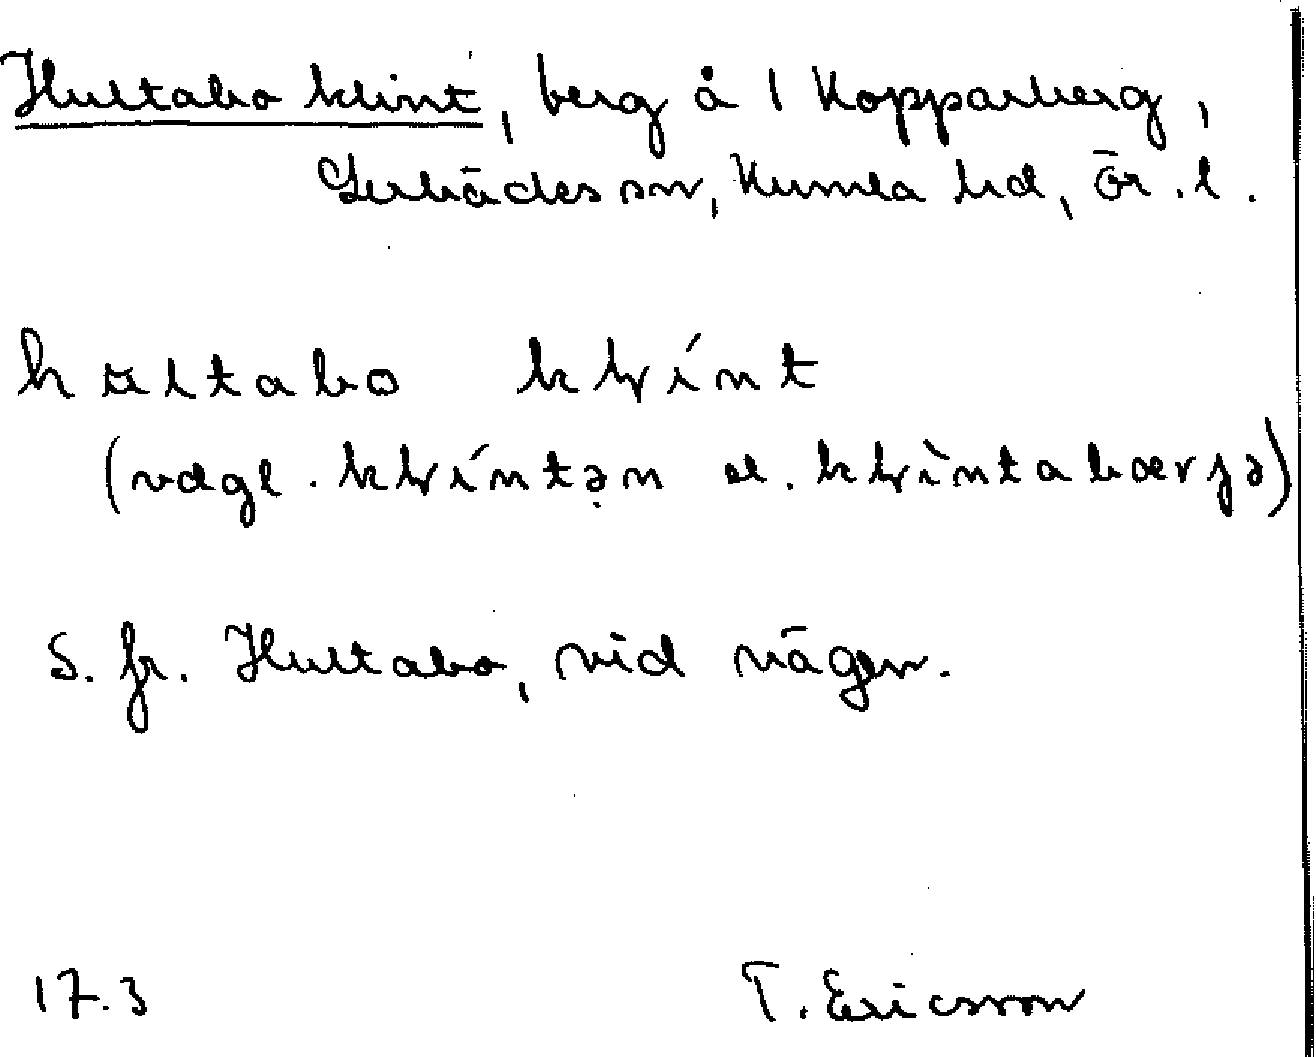 Hultabo klint, berg å 1 Kopparberg,
Lerbäcks sn, Kumla hd, Ör. l.
hultabo kḷínt
(vdgl. kḷíntən el. kḷìntabærjə)
S. fr. Hultabo, vid vägen.
17.3 T. Ericsson